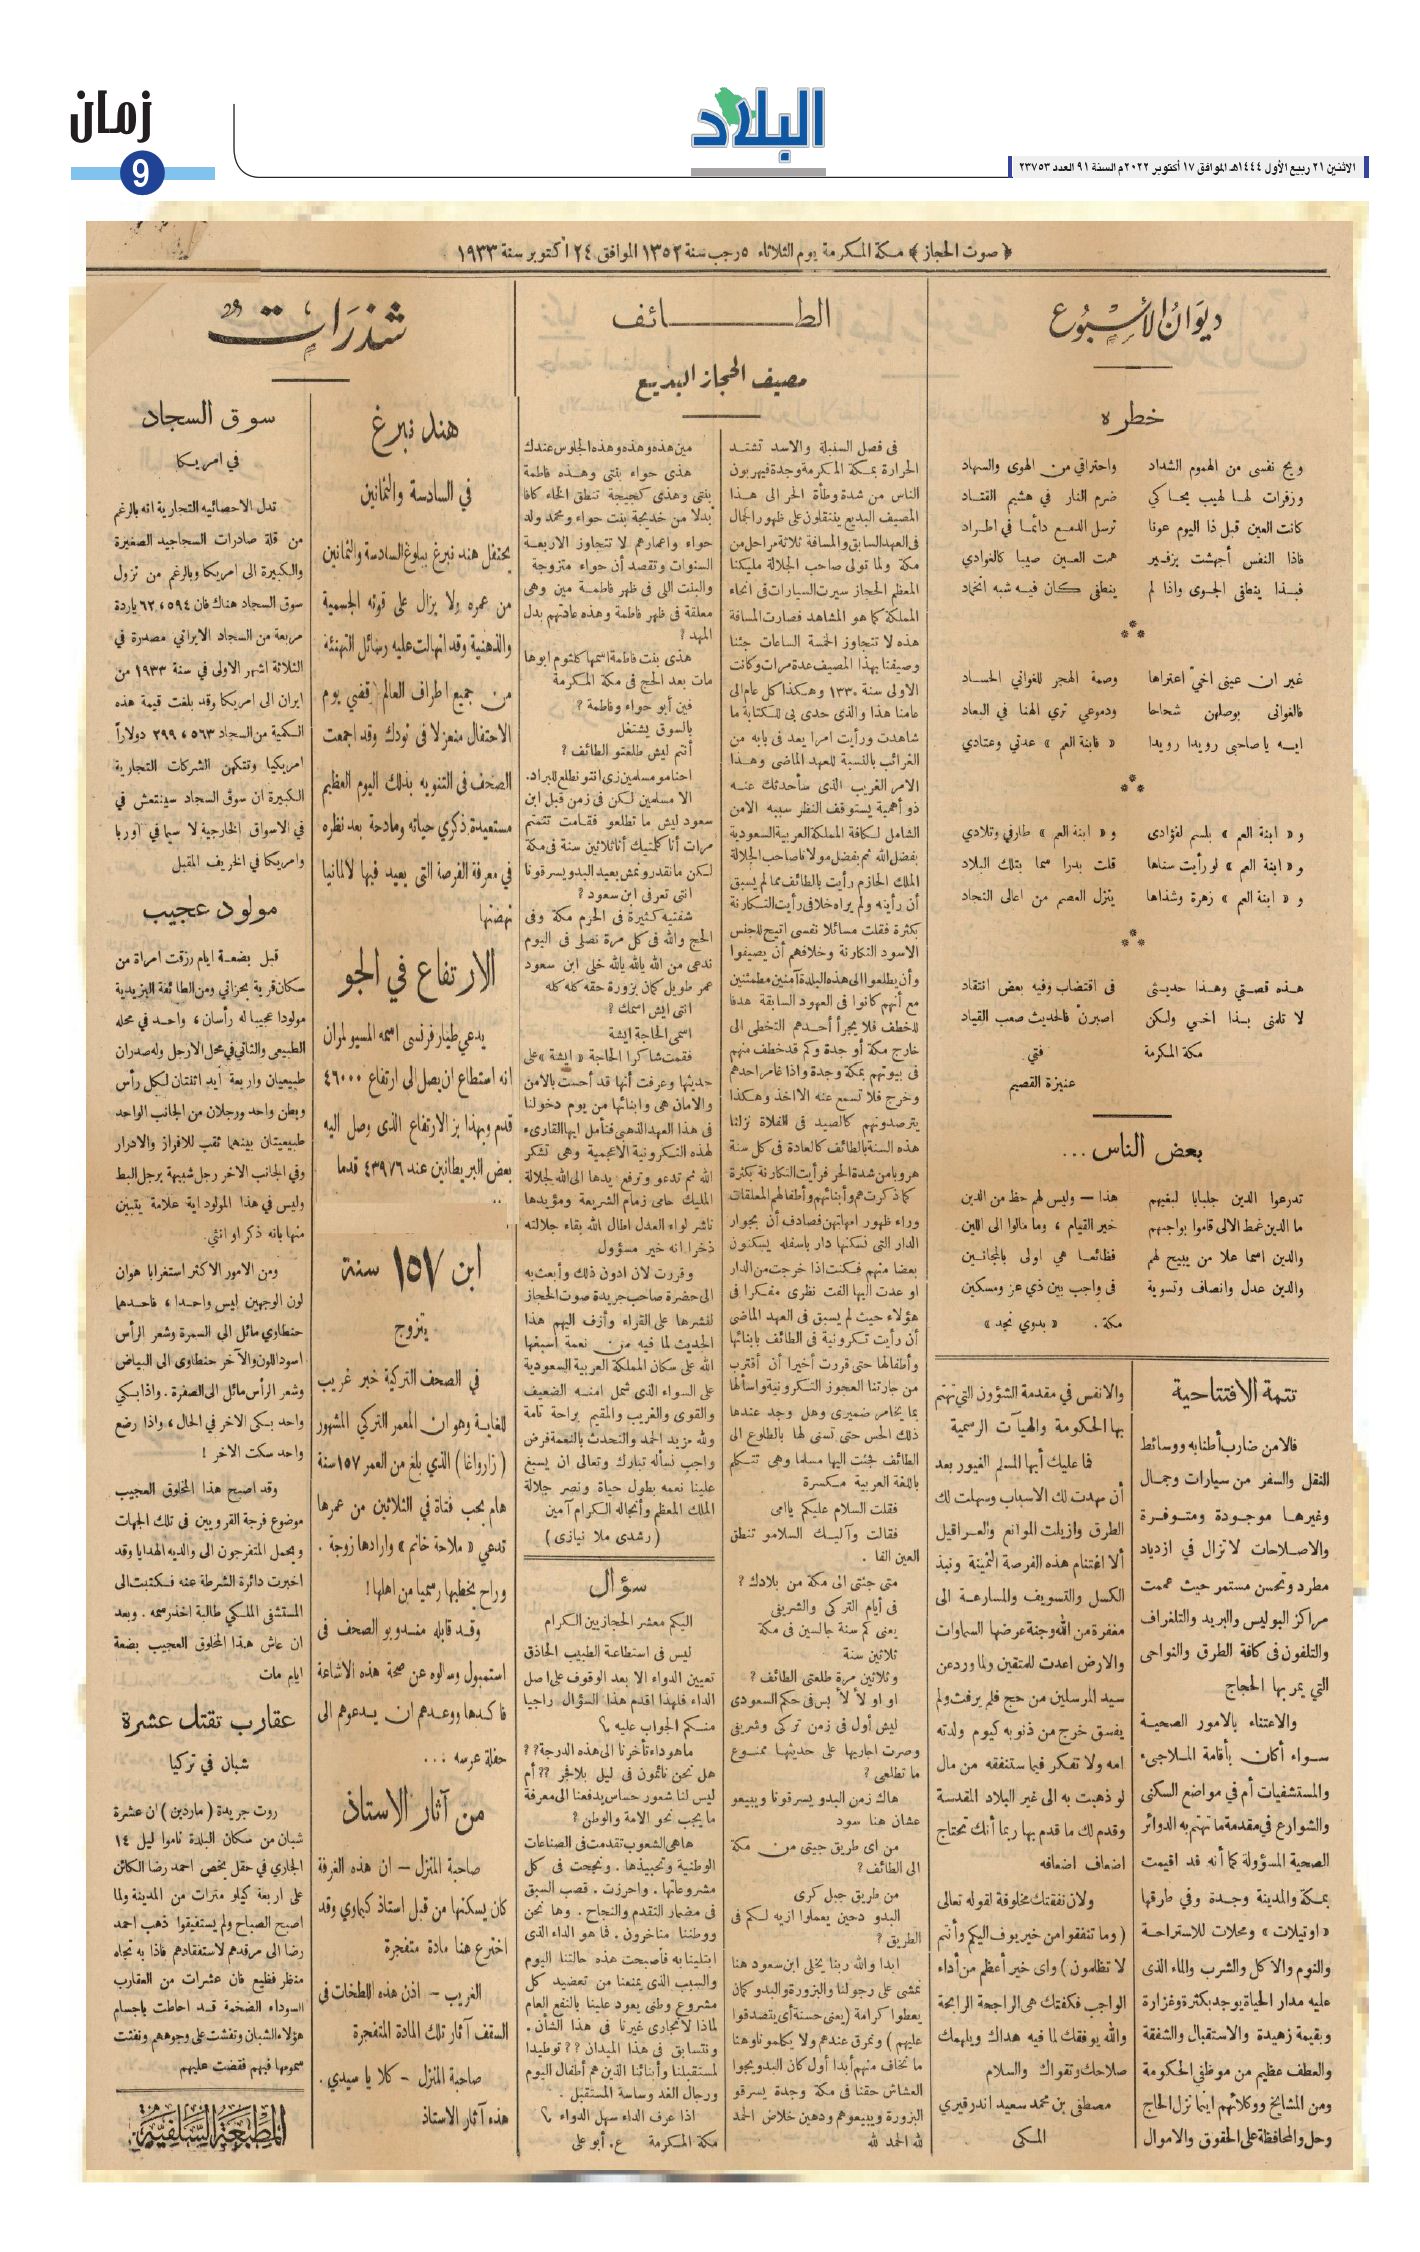 زمان
9
البلاد
الاثنين ٢١ ربيع الأول ١٤٤٤هـ الموافق ١٧ أكتوبر ٢٠٢٢م السنة ٩١ العدد ٢٣٧٥٣
﴿ صوت الحجاز ﴾ مكة المكرمة يوم الثلاثاء ٥ رجب سنة ١٣٥٢ الموافق ٢٤ اكتوبر سنة ١٩٣٣
ديوان الأسبوع
خطره
ويح نفسى من الهموم الشداد واحتراقي من الهوى والسهاد
وزفرات لها لهيب يحاكي ضرم النار في هشيم القتاد
كانت العين قبل ذا اليوم عونا ترسل الدمع دائما في اطراد
فاذا النفس أجهشت بزفير همت العين صيبا كالغوادي
فبذا ينطفى الجوى واذا لم ينطفي كان فيه شبه اتخاد
غير ان عينى اخيّ اعتراها وصمة الهجر للغواني الحساد
فالغوانى بوصلهن شحاحا ودموعي تري الهنا في البعاد
ايه يا صاحبى رويدا رويدا « فابنة العم » عدتي وعتادي
و « ابنة العم » بلسم لفؤادى و « ابنة العم » طارفي وتلادي
و « ابنة العم » لو رأيت سناها قلت بدرا سما بتلك البلاد
و « ابنة العم » زهرة وشذاها ينزل العصم من اعالى النجاد
هذه قصتي وهذا حديثى فى اقتضاب وفيه بعض انتقاد
لا تلمنى بذا اخي ولكن اصبرن فالحديث صعب القياد
مكة المكرمة فتي
عنيزة القصيم
بعض الناس ...
تدرعوا الدين جلبابا لبغيهم هذا — وليس لهم حظ من الدين
ما الدين غمط الالى قاموا بواجبهم خير القيام ، وما مالوا الى اللين
والدين اسما علا من يبيح لهم فظائعا هي اولى بالمجانين
والدين عدل وانصاف وتسوية فى واجب بين ذي عز ومسكين
مكة . « بدوي نجد »
تتمة الافتتاحية
فالامن ضارب أطنابه ووسائط
النقل والسفر من سيارات وجمال
وغيرها موجودة ومتوفرة
والاصلاحات لا تزال في ازدياد
مطرد وتحسن مستمر حيث عممت
مراكز البوليس والبريد والتلغراف
والتلفون فى كافة الطرق والنواحى
التي يمر بها الحجاج
والاعتناء بالامور الصحية
سواء أكان بأقامة الملاجىء
والمستشفيات أم في مواضع السكنى
والشوارع في مقدمة ما تهتم به الدوائر
الصحية المسؤولة كما أنه قد اقيمت
بمكة والمدينة وجدة وفي طرقها
« اوتيلات » ومحلات للاستراحة
والنوم والاكل والشرب والماء الذى
عليه مدار الحياة يوجد بكثرة وغزارة
وبقيمة زهيدة والاستقبال والشفقة
والعطف عظيم من موظفي الحكومة
ومن المشايخ ووكلائهم اينما نزل الحاج
وحل والمحافظة على الحقوق والاموال
والانفس في مقدمة الشؤون التي تهتم
بها الحكومة والهيآت الرسمية
فما عليك أيها المسلم الغيور بعد
أن مهدت لك الاسباب وسهلت لك
الطرق وازيلت الموانع والعراقيل
ألا اغتنام هذه الفرصة الثمينة ونبذ
الكسل والتسويف والمسارعة الى
مغفرة من الله وجنة عرضها السماوات
والارض اعدت للمتقين ولما ورد عن
سيد المرسلين من حج فلم يرفث ولم
يفسق خرج من ذنوبه كيوم ولدته
امه ولا تفكر فيما ستنفقه من مال
لو ذهبت به الى غير البلاد المقدسة
وقدم لك ما قدم بها ربما أنك تحتاج
اضعاف اضعافه
ولان نفقتك مخلوفة لقوله تعالى
( وما تنفقوا من خير يوف اليكم وأنتم
لا تظلمون ) واى خير أعظم من أداء
الواجب فكفتك هى الراجحة الرابحة
والله يوفقك لما فيه هداك ويلهمك
صلاحك وتقواك والسلام
مصطفى بن محمد سعيد اندرقيري
المكى
الطائف
مصيف الحجاز البديع
فى فصل السنبلة والاسد تشتد
الحرارة بمكة المكرمة وجدة فيهربون
الناس من شدة وطأة الحر الى هذا
المصيف البديع ينتقلون على ظهور الجمال
فى العهد السابق والمسافة ثلاثة مراحل من
مكة ولما تولى صاحب الجلالة مليكنا
المعظم الحجاز سيرت السيارات فى انحاء
المملكة كما هو المشاهد فصارت المسافة
هذه لا تتجاوز الخمسة الساعات جئنا
وصيفنا بهذا المصيف عدة مرات وكانت
الاولى سنة ١٣٣٠ وهكذا كل عام الى
عامنا هذا والذى حدى بى للكتابة ما
شاهدت ورأيت امرا يعد فى بابه من
الغرائب بالنسبة للعهد الماضى وهذا
الامر الغريب الذى سأحدثك عنه
ذو أهمية يستوقف النظر سببه الامن
الشامل لكافة المملكة العربية السعودية
بفضل الله ثم بفضل مولانا صاحب الجلالة
الملك الحازم رأيت بالطائف مما لم يسبق
أن رأيته ولم يراه خلافى رأيت التكارنة
بكثرة فقلت مسائلا نفسى اتيح للجنس
الاسود التكارنة وخلافهم أن يصيفوا
وأن يطلعوا الى هذه البلدة آمنين مطمئنين
مع أنهم كانوا فى العهود السابقة هدفا
للخطف فلا يجرأ أحدهم التخطى الى
خارج مكة أو جدة وكم قد خطف منهم
فى بيوتهم بمكة وجدة واذا غامر احدهم
وخرج فلا تسمع عنه الا اخذ وهكذا
يترصدونهم كالصيد فى الفلاة نزلنا
هذه السنة بالطائف كالعادة فى كل سنة
هروبا من شدة الحر فرأيت التكارنة بكثرة
كما ذكرت هم وأبنائهم وأطفالهم المعلقات
وراء ظهور امهاتهن فصادف أن بجوار
الدار التى نسكنها دار باسفله يسكنون
بعضا منهم فكنت اذا خرجت من الدار
او عدت اليها الفت نظرى مفكرا فى
هؤلاء حيث لم يسبق فى العهد الماضى
أن رأيت تكرونية فى الطائف بابنائها
وأطفالها حتى قررت أخيرا أن أقترب
من جارتنا العجوز التكرونية واسألها
بما يخامر ضميرى وهل وجد عندها
ذلك الحس حتى تسنى لها بالطلوع الى
الطائف فجئت اليها مسلما وهى تتكلم
باللغة العربية مكسرة
فقلت السلام عليكم ياامى
فقالت وآليك السلامو تنطق
العين الفا .
متى جئتى الى مكة من بلادك ؟
فى أيام التركى والشريفى
يعنى كم سنة جالسين فى مكة
ثلاثين سنة
وثلاثين مرة طلعتى الطائف ؟
او او لأ لأ بس فى حكم السعودى
ليش أول فى زمن تركى وشريفى
وصرت اجاريها على حديثها ممنوع
ما تطلعى ؟
هاك زمن البدو يسرقونا ويبيعو
عشان هنا سود
من اى طريق جيتى من مكة
الى الطائف ؟
من طريق جبل كرى
البدو دحين يعملوا ازيه لكم فى
الطريق ؟
ابدا والله ربنا يخلى ابن سعود هنا
نمشى على رجولنا والبزورة والبدو كمان
يعطوا كرامة (يعنى حسنة أى يتصدقوا
عليهم ) ونمرق عندهم ولا يكلمونا وهنا
ما نخاف منهم أبدا أول كان البدو يجوا
العشاش حقنا فى مكة وجدة يسرقو
البزورة ويبيعوهم ودحين خلاص الحمد
لله الحمد لله
مين هذه وهذه وهذه الجلوس عندك
هذى حواء بنتى وهذه فاطمة
بنتى وهذى كجيجة تنطق الخاء كافا
بدلا من خديجة ابنت حواء ومحمد ولد
حواء واعمارهم لا تتجاوز الاربعة
السنوات وتقصد أن حواء متزوجة
والبنت اللى فى ظهر فاطمة مين وهى
معلقة فى ظهر فاطمة وهذه عادتهم بدل
المهد ؟
هذى بنت فاطمة اسمها كلثوم ابوها
مات بعد الحج فى مكة المكرمة
فين أبو حواء وفاطمة ؟
بالسوق يشتغل
أنتم ليش طلعتو الطائف ؟
احنا مو مسلمين زى انتو نطلع للبراد.
الا مسلمين لكن فى زمن قبل ابن
سعود ليش ما تطلعو فقامت تتمتم
مرات أنا كلمتيك أنا ثلاثين سنة فى مكة
لكن ما نقدر ونمش بعيد البدو يسرقونا
انتى تعرفى ابن سعود ؟
شفتيه كثيرة فى الحرم مكة وفى
الحج والله فى كل مرة نصلى فى اليوم
ندعى من الله يالله يالله خلى ابن سعود
عمر طويل كمان بزورة حقه كله كله
انتى ايش اسمك ؟
اسمى الحاجة ايشة
فقمت شاكرا الحاجة « ايشة » على
حديثها وعرفت أنها قد أحست بالامن
والامان هى وابنائها من يوم دخولنا
فى هذا العهد الذهبى فتأمل ايها القارىء
لهذه التكرونية الاعجمية وهى تشكر
الله ثم تدعو وترفع يدها الى الله لجلالة
المليك حامى زمام الشريعة ومؤيدها
ناشر لواء العدل اطال الله بقاء جلالته
ذخرا انه خير مسؤول
وقررت لان ادون ذلك وأبعث به
الى حضرة صاحب جريدة صوت الحجاز
لنشرها على القراء وأزف اليهم هذا
الحديث لما فيه من نعمة اسبغها
الله على سكان المملكة العربية السعودية
على السواء الذى شمل امنه الضعيف
والقوى والغريب والمقيم براحة تامة
ولله مزيد الحمد والتحدث بالنعمة فرض
واجب نسأله تبارك وتعالى ان يسبغ
علينا نعمه بطول حياة ونصر جلالة
الملك المعظم وأنجاله الكرام آمين
( رشدى ملا نيازى )
سؤال
اليكم معشر الحجازيين الكرام
ليس فى استطاعة الطبيب الحاذق
تعيين الدواء الا بعد الوقوف على اصل
الداء فلهذا اقدم هذا السؤال راجيا
منكم الجواب عليه ؟
ما هو داء تأخرنا الى هذه الدرجة ؟؟
هل نحن نائمون فى ليل بلا فجر ؟؟ أم
ليس لنا شعور حساس يدفعنا الى معرفة
ما يجب نحو الامة والوطن ؟
هاهى الشعوب تقدمت فى الصناعات
الوطنية وتحبيذها . ونجحت فى كل
مشروعاتها . واحرزت . قصب السبق
فى مضمار التقدم والنجاح . وها نحن
ووطننا متاخرون . فما هو الداء الذى
ابتلينا به فأصبحت هذه حالتنا اليوم
والسبب الذى يمنعنا من تعضيد كل
مشروع وطنى يعود علينا بالنفع العام
لماذا لا نجارى غيرنا فى هذا الشأن .
ونتسابق فى هذا الميدان ؟؟ توطيدا
لمستقبلنا وأبنائنا الذين هم أطفال اليوم
ورجال الغد وساسة المستقبل .
اذا عرف الداء سهل الدواء ؟
مكة المكرمة ع . أبو على
شذرات
هند نبرغ
في السادسة والثمانين
يحتفل هند نبرغ ببلوغ السادسة والثمانين
من عمره ولا يزال على قوته الجسمية
والذهنية وقد انهالت عليه رسائل التهنئة
من جميع اطراف العالم ( قضي يوم
الاحتفال منعزلا فى نودك وقد اجمعت
الصحف فى التنويه بذلك اليوم العظيم
مستعيدة ذكري حياته ومادحة بعد نظره
في معرفة الفرصة التى يعيد فيها لالمانيا
نهضتها
الارتفاع في الجو
يدعي طيار فرنسى اسمه المسيو لمران
انه استطاع ان يصل الى ارتفاع ٤٦٠٠٠
قدم وبهذا بز الارتفاع الذى وصل اليه
بعض البريطانين عند ٤٣٩٧٦ قدما
ابن ١٥٧ سنة
يتزوج
في الصحف التركية خبر غريب
للغاية وهو ان المعمر التركي المشهور
( زارواغا ) الذي بلغ من العمر ١٥٧ سنة
هام بحب فتاة في الثلاثين من عمرها
تدعي « ملاحة خانم » وارادها زوجة .
وراح يخطبها رسميا من اهلها !
وقد قابله مندوبو الصحف فى
استمبول وسالوه عن صحة هذه الاشاعة
فاكدها ووعدهم ان يدعوهم الى
حفلة عرسه ...
من آثار الاستاذ
صاحبة المنزل — ان هذه الغرفة
كان يسكنها من قبل استاذ كيماوي وقد
اخترع هنا مادة متفجرة
الغريب — اذن هذه اللطخات فى
السقف آثار تلك المادة المتفجرة
صاحبة المنزل — كلا يا سيدي .
هذه آثار الاستاذ
سوق السجاد
في امريكا
تدل الاحصائيه التجارية انه بالرغم
من قلة صادرات السجاجيد الصغيرة
والكبيرة الى امريكا وبالرغم من نزول
سوق السجاد هناك فان ٦٢،٥٩٤ ياردة
مربعة من السجاد الايرانى مصدرة في
الثلاثة اشهر الاولى في سنة ١٩٣٣ من
ايران الى امريكا وقد بلغت قيمة هذه
الكمية من السجاد ٢٩٩،٥٦٣ دولاراً
امريكيا وتتكهن الشركات التجارية
الكبيرة ان سوق السجاد سينتعش في
في الاسواق الخارجية لا سيما في اوربا
وامريكا في الخريف المقبل
مولود عجيب
قبل بضعة ايام رزقت امراة من
سكان قرية بحزانى ومن الطائفة اليزيدية
مولودا عجيبا له رأسان ، واحد في محله
الطبيعى والثاني في محل الارجل وله صدران
طبيعيان واربعة ايد اثنتان لكل رأس
وبطن واحد ورجلان من الجانب الواحد
طبيعيتان بينهما ثقب للافراز والادرار
وفي الجانب الاخر رجل شبيهة برجل البط
وليس في هذا المولود اية علامة يتبين
منها بانه ذكر او انثى
ومن الامور الاكثر استغرابا هو ان
لون الوجهين ليس واحدا ، فاحدهما
حنطاوي مائل الى السمرة وشعر الرأس
اسود اللون والآخر حنطاوى الى البياض
وشعر الرأس مائل الى الصفرة . واذا بكي
واحد بكى الاخر في الحال ، واذا رضع
واحد سكت الاخر !
وقد اصبح هذا المخلوق العجيب
موضوع فرجة القرويين فى تلك الجهات
ويحمل المتفرجون الى والديه الهدايا وقد
اخبرت دائرة الشرطة عنه فكتبت الى
المستشفى الملكي طالبة اخذ رسمه . وبعد
ان عاش هذا المخلوق العجيب بضعة
ايام مات
عقارب تقتل عشرة
شبان في تركيا
روت جريدة ( ماردين ) ان عشرة
شبان من سكان البلدة ناموا ليل ١٤
الجاري في حقل يخص احمد رضا الكائن
على اربعة كيلو مترات من المدينة ولما
اصبح الصباح ولم يستفيقوا ذهب احمد
رضا الى مرقدهم لاستفقادهم فاذا به تجاه
منظر فظيع فان عشرات من العقارب
السوداء الضخمة قد احاطت باجسام
هؤلاء الشبان وتفشت على وجوههم ونفثت
سمومها فيهم فقضت عليهم
المطبعة السلفية